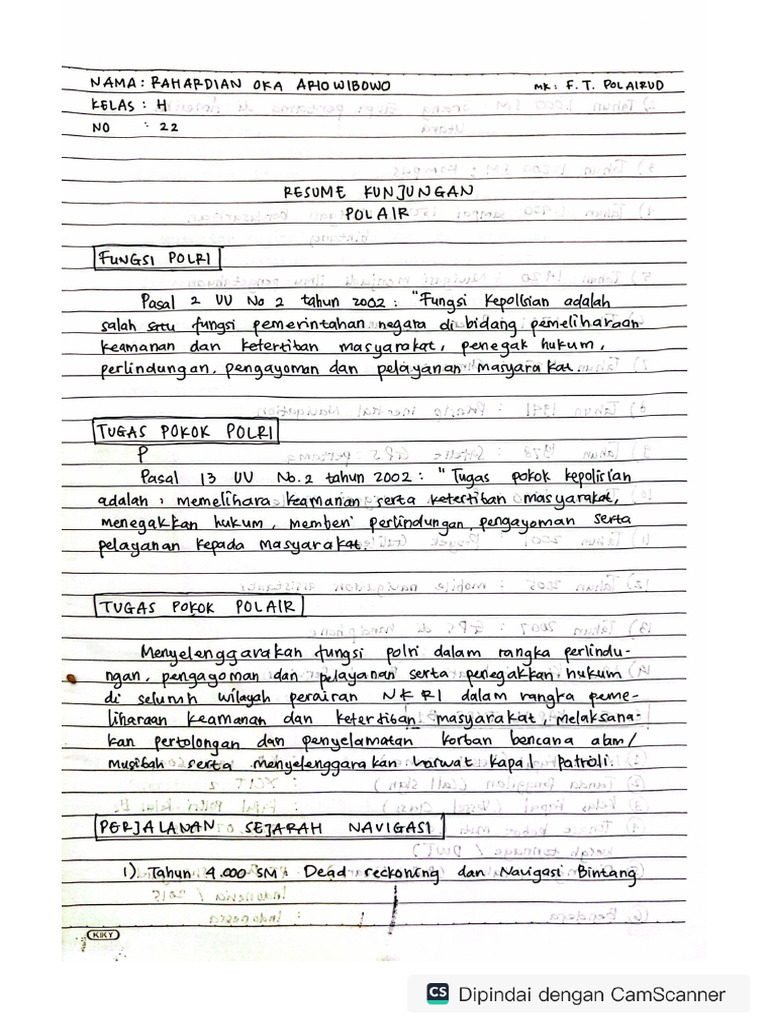 NAMA : RAHARDIAN OKA ARIO WIBOWO MK : F. T. POLAIRUD
KELAS : H
NO : 22
RESUME KUNJUNGAN
POLAIR
FUNGSI POLRI
Pasal 2 UU No 2 tahun 2002 : "Fungsi Kepolisian adalah
salah satu fungsi pemerintahan negara di bidang pemeliharaan
keamanan dan ketertiban masyarakat, penegak hukum,
perlindungan, pengayoman dan pelayanan masyarakat.
TUGAS POKOK POLRI
P
Pasal 13 UU No. 2 tahun 2002 : "Tugas pokok kepolisian
adalah : memelihara keamanan serta ketertiban masyarakat,
menegakkan hukum, memberi perlindungan, pengayoman serta
pelayanan kepada masyarakat.
TUGAS POKOK POLAIR
Menyelenggarakan fungsi polri dalam rangka perlindu-
ngan, pengayoman dan pelayanan serta penegakkan hukum
di seluruh wilayah perairan NKRI dalam rangka peme-
liharaan keamanan dan ketertiban masyarakat, melaksana-
kan pertolongan dan penyelamatan korban bencana alam/
musibah serta menyelenggarakan harwat kapal patroli.
PERJALANAN SEJARAH NAVIGASI
1). Tahun 4.000 SM : Dead reckoning dan Navigasi Bintang
KIKY
CS Dipindai dengan CamScanner